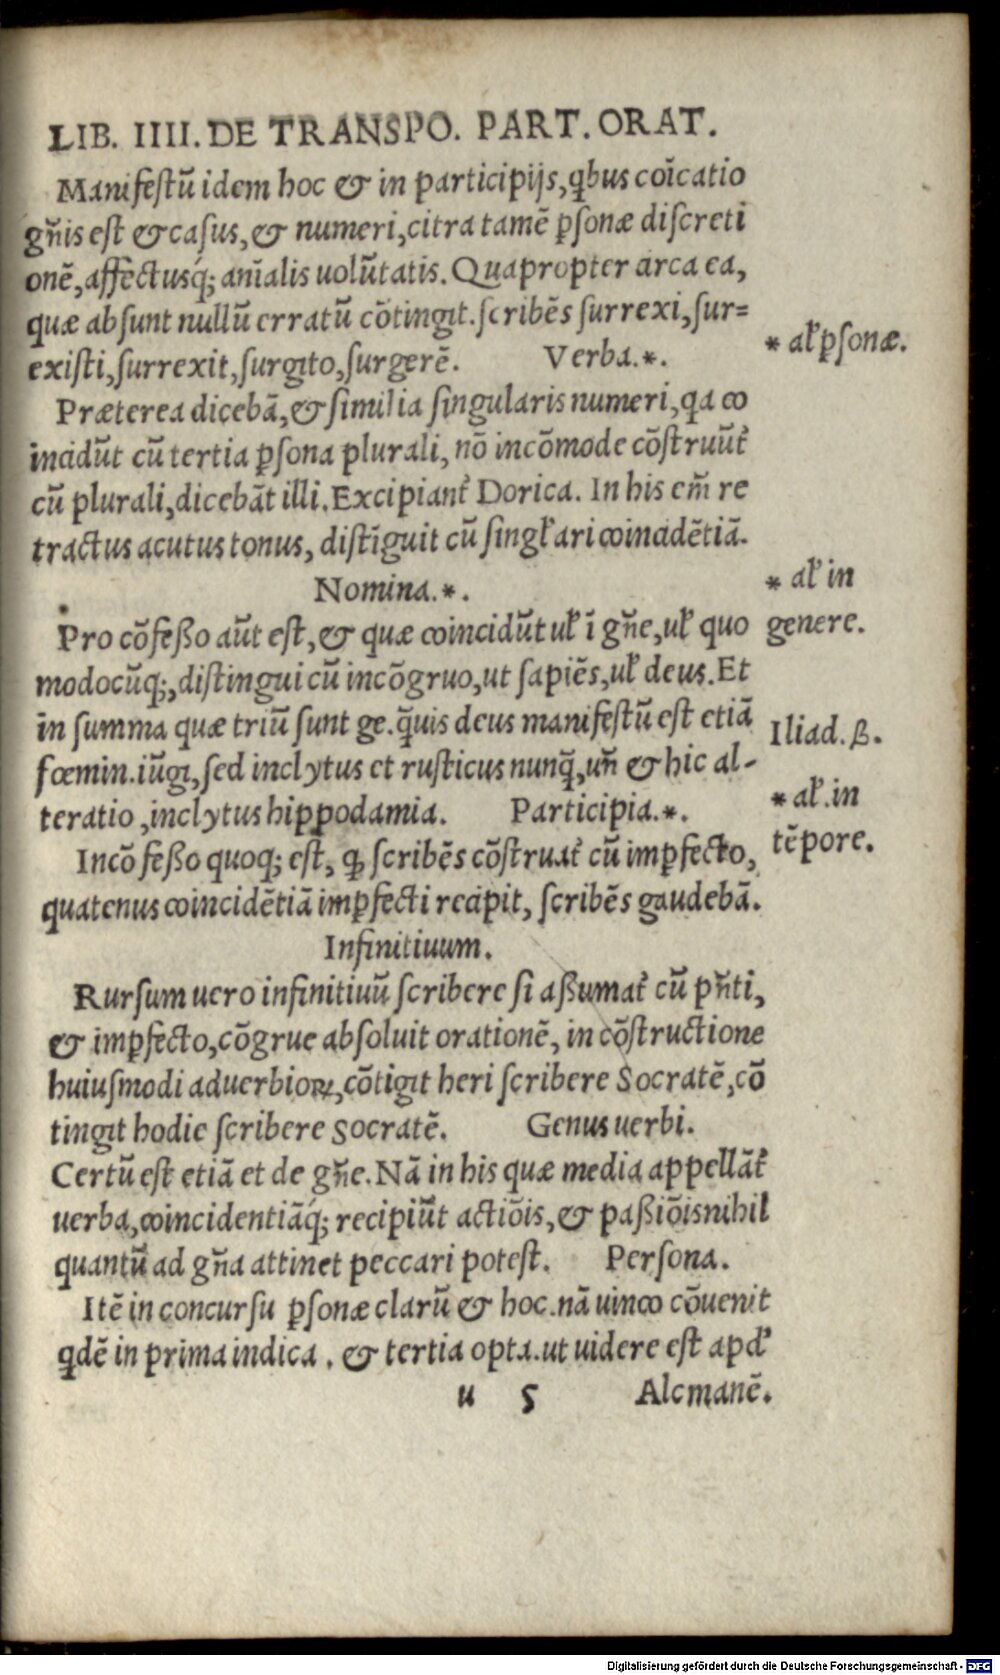 LIB. IIII. DE TRANSPO. PART. ORAT.
Manifestũ idem hoc & in participijs, qbus coĩcatio
gñis est & casus, & numeri, citra tamẽ psonæ discreti
onẽ, affectusq́; anĩalis uolũtatis. Quapropter arca ea,
quæ absunt nullũ erratũ cõtingit. scribẽs surrexi, sur=
existi, surrexit, surgito, surgerẽ. Verba.*.
* al' psonæ.
Præterea dicebã, & similia singularis numeri, qa co
incidũt cũ tertia psona plurali, nõ incõmode cõstruũt'
cũ plurali, dicebãt illi. Excipiant' Dorica. In his em̃ re
tractus acutus tonus, distĩguit cũ singl'ari coincidẽtiã.
Nomina.*.
* al' in
genere.
Pro cõfeßo aũt est, & quæ coincidũt ul' ĩ gñe, ul' quo
modocũq;, distingui cũ incõgruo, ut sapiẽs, ul' deus. Et
in summa quæ triũ sunt ge. q̃uis deus manifestũ est etiã
fœmin. iũgi, sed inclytus et rusticus nunq̃, uñ & hic al-
teratio, inclytus hippodamia. Participia.*.
Iliad. β.
* al'. in
tẽpore.
Incõfeßo quoq; est, q scribẽs cõstruat' cũ impfecto,
quatenus coincidẽtiã impfecti recipit, scribẽs gaudebã.
Infinitiuum.
Rursum uero infinitiuũ scribere si aßumat' cũ pñti,
& impfecto, cõgrue absoluit orationẽ, in cõstructione
huiusmodi aduerbioꝝ, cõtigit heri scribere Socratẽ, cõ
tingit hodie scribere Socratẽ. Genus uerbi.
Certũ est etiã et de gñe. Nã in his quæ media appellãt'
uerba, coincidentiãq́; recipiũt actiõis, & paßiõis nihil
quantũ ad gña attinet peccari potest. Persona.
Itẽ in concursu psonæ clarũ & hoc. nã uinco cõuenit
qdẽ in prima indica. & tertia opta. ut uidere est apd'
u 5 Alcmanẽ.
Digitalisierung gefördert durch die Deutsche Forschungsgemeinschaft - DFG